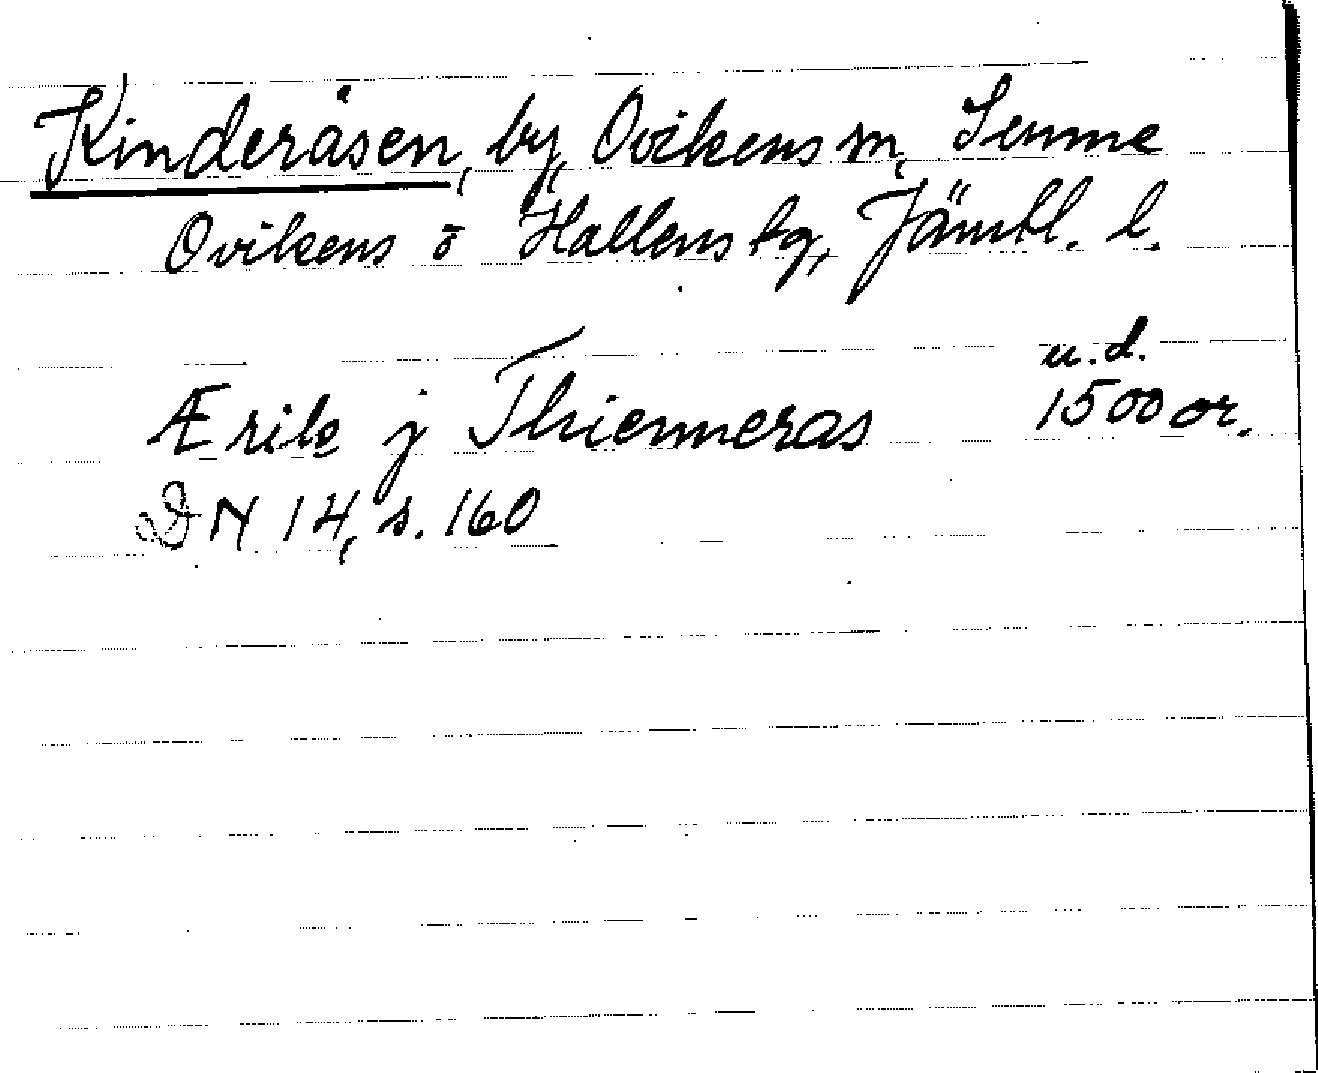 Kinderåsen, by, Ovikens sn, Sunne
Ovikens o Hallens tg, Jämtl. l.
u.d.
Ærik j Thienneras 1500 or.
DN 14, s. 160